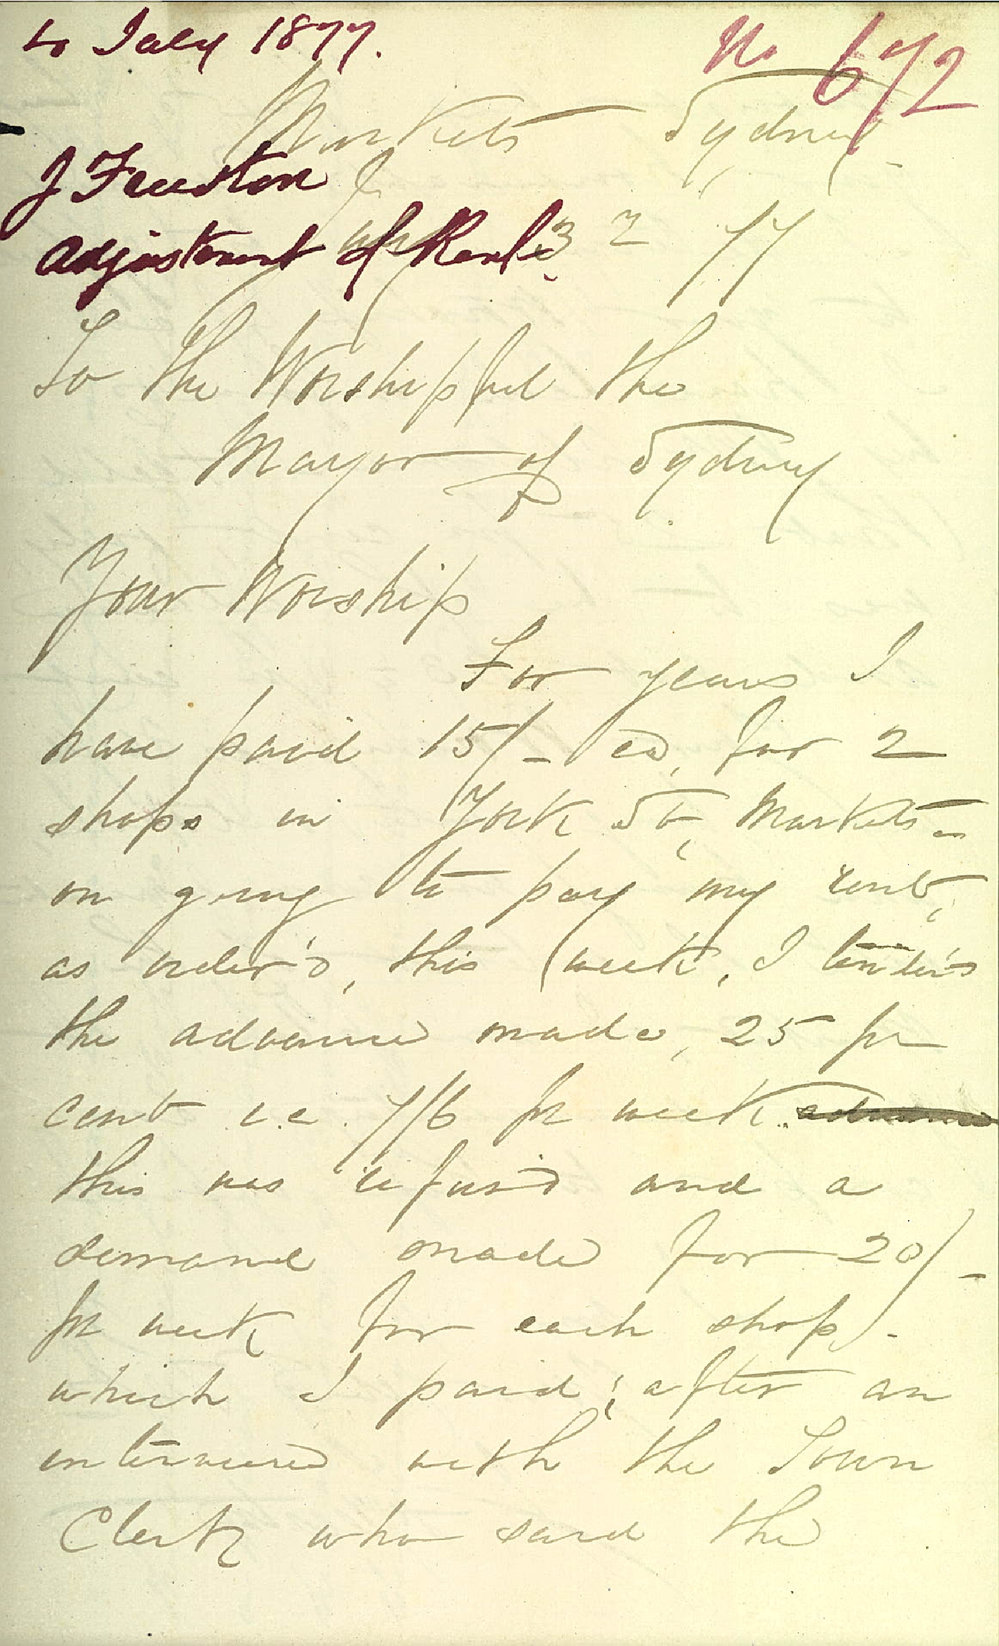 4 July 1877.
No 672
Markets Sydney
J Fauston
July 3 77
Adjustment of Rent.
To the Worshipful the
Mayor of Sydney
Your Worship
For years I
have paid 15/- ea, for 2
shops in York St, Markets -
on going to pay my rent,
as order'd, this week, I tender'd
the advance made, 25 pr
cent i.e. 7/6 pr week.
this was refus'd and a
demand made for 20/-
pr week for each shop, -
which I paid; after an
interview with the Town
Clerk who said the